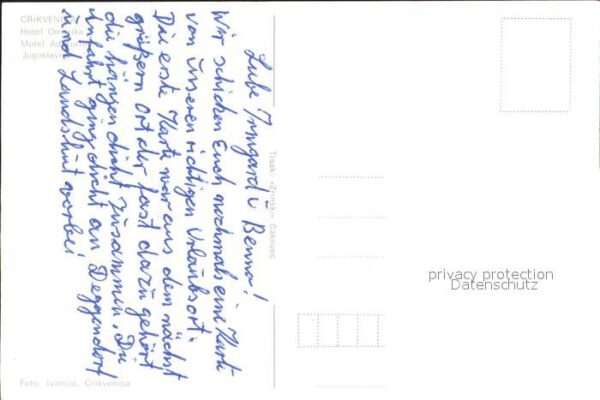 CRIKVENICA
Hotel Omorika
Motel Ad
Jugoslavija
Liebe Irmgard u Benno!
Wir schicken Euch nochmals eine Karte
von unseren richtigen Urlaubsort.
Die erste Karte war aus dem nächst
größern Ort der fast dazu gehört
die hängen dicht zusammen. Die
Anfahrt ging dicht an Deggendorf
und Landshut vorbei
Tisak: «Zrinski» Čakovec
Foto: Ivančić, Crikvenica
privacy protection
Datenschutz